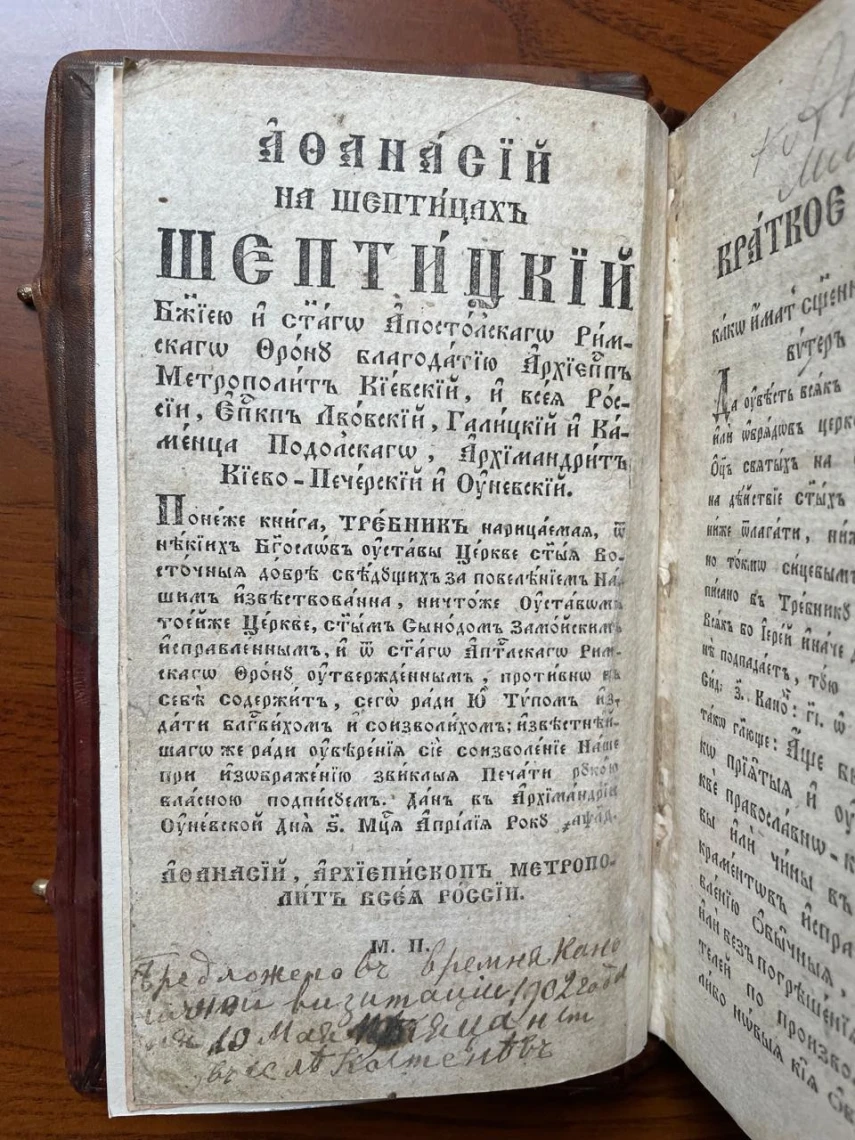 А҆ѲАНА́СЇЙ
НА ШЕПТИ́ЦАХЪ
ШЕПТИ́ЦКЇЙ
Бж҃їею и҆ ст҃а́гѡ А҆посто́лскагѡ Ри́м-
скагѡ Ѳро́нꙋ благода́тїю А҆рхїеп҃пъ
Метрополи́тъ Кі́евскїй, и҆ всея́ Рѡ́с-
сїи, Е҆п҃кпъ Лво́вскїй, Галі́цкїй и҆ Ка́-
менца Подо́лскагѡ, А҆рхїмандри́тъ
Кїево-Пече́рскїй и҆ Оу҆невскїй.
Поне́же книга, ТРЕ́БНИКЪ нарица́емая, ѿ
нѣ́кїихъ Бг҃осло́въ оу҆ста́вы Це́ркве ст҃ы́я Во-
сто́чныя до́брѣ свѣ́дꙋщихъ за повелѣ́нїемъ На́-
шимъ и҆звѣ́ствова́нна, ничто́же Оу҆ста́вѡмъ
тое́йже Це́ркве, ст҃ы́мъ Сѵно́домъ Замо́йскимъ
и҆спра́вленнымъ, и҆ ѿ ст҃а́гѡ А҆пⷭ҇лскагѡ Ри́м-
скагѡ Ѳро́нꙋ оу҆твержде́ннымъ, проти́вно въ
себѣ̀ содержи́тъ, сегѡ̀ ра́ди Ю҆̀ Тѵ́помъ и҆з-
да́ти блг҃ви́хомъ и҆ соизво́лихомъ; и҆звѣ́стнѣй-
шагѡ же ра́ди оу҆вѣре́нїя сїѐ соизволе́нїе На́ше
при и҆зѡбраже́нїю зви́клыя Печа́ти рꙋко́ю
вла́сною подпи́сꙋемъ. Да́нъ въ А҆рхїма́ндрїи
Оу҆не́вской Дня̀ ѕ҃. Мц҃а А҆прі́лїя Ро́кꙋ ҂аѱлд.
А҆ѲАНА́СЇЙ, А҆РХЇЕПИ́СКОПЪ МЕТРОПО-
ЛИ́ТЪ ВСЕЯ́ РО́ССЇИ.
М. П.
Предложено въ времня Кано
визитации 1902 года
дня 10 Мая
въ селѣ
КРА́ТКОЕ
ка́кѡ и҆́матъ
Да оу҆вѣ́сть вся́къ
и҆лѝ ѡ҆брѧ́дѡвъ церк
Оц҃ъ свѧты́хъ на
на дѣ́йствїе ст҃ы́хъ
ни́же ѿлага́ти, ни́ж
но то́кмѡ си́цевымъ
пи́сано въ Тре́бникꙋ
Вся́къ бо І҆ере́й и҆на́че
не подпада́етъ, тꙋ́ю
такѡ гл҃юще: А҆́ще
кѡ прїѧ́тыя и҆
квѐ правосла́внѡ-к
вы и҆лѝ чи́ны въ
краме́нтѡвъ и҆спра
вле́нїю ѻ҆бы́чныя,
и҆лѝ без̾ погрѣше́нїѧ
те́лей по произво́л
ли́ко нѡ́выя кі́я